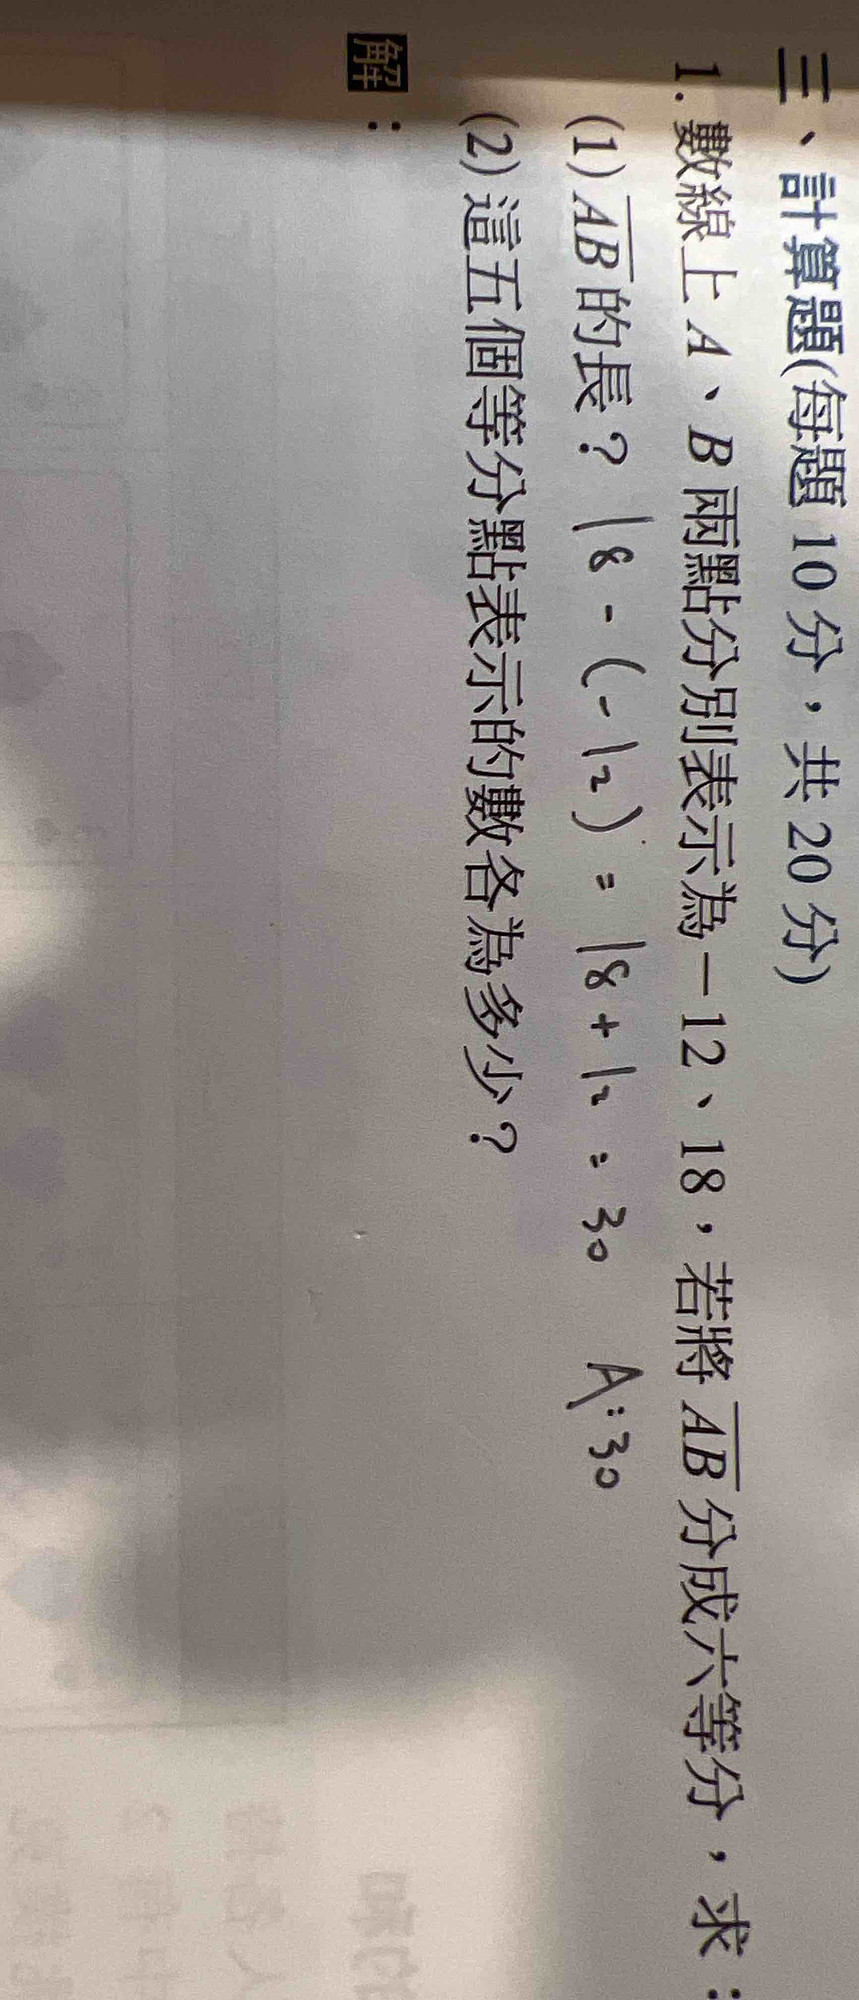 三、計算題(每題 10 分，共 20 分)
1. 數線上 A、B 兩點分別表示為－12、18，若將 AB 分成六等分，求：
(1) AB 的長？ 18 - (-12) = 18 + 12 = 30 A:30
(2) 這五個等分點表示的數各為多少？
解：